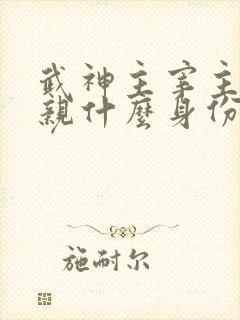 武神主宰主
親什麼身份
施耐尔